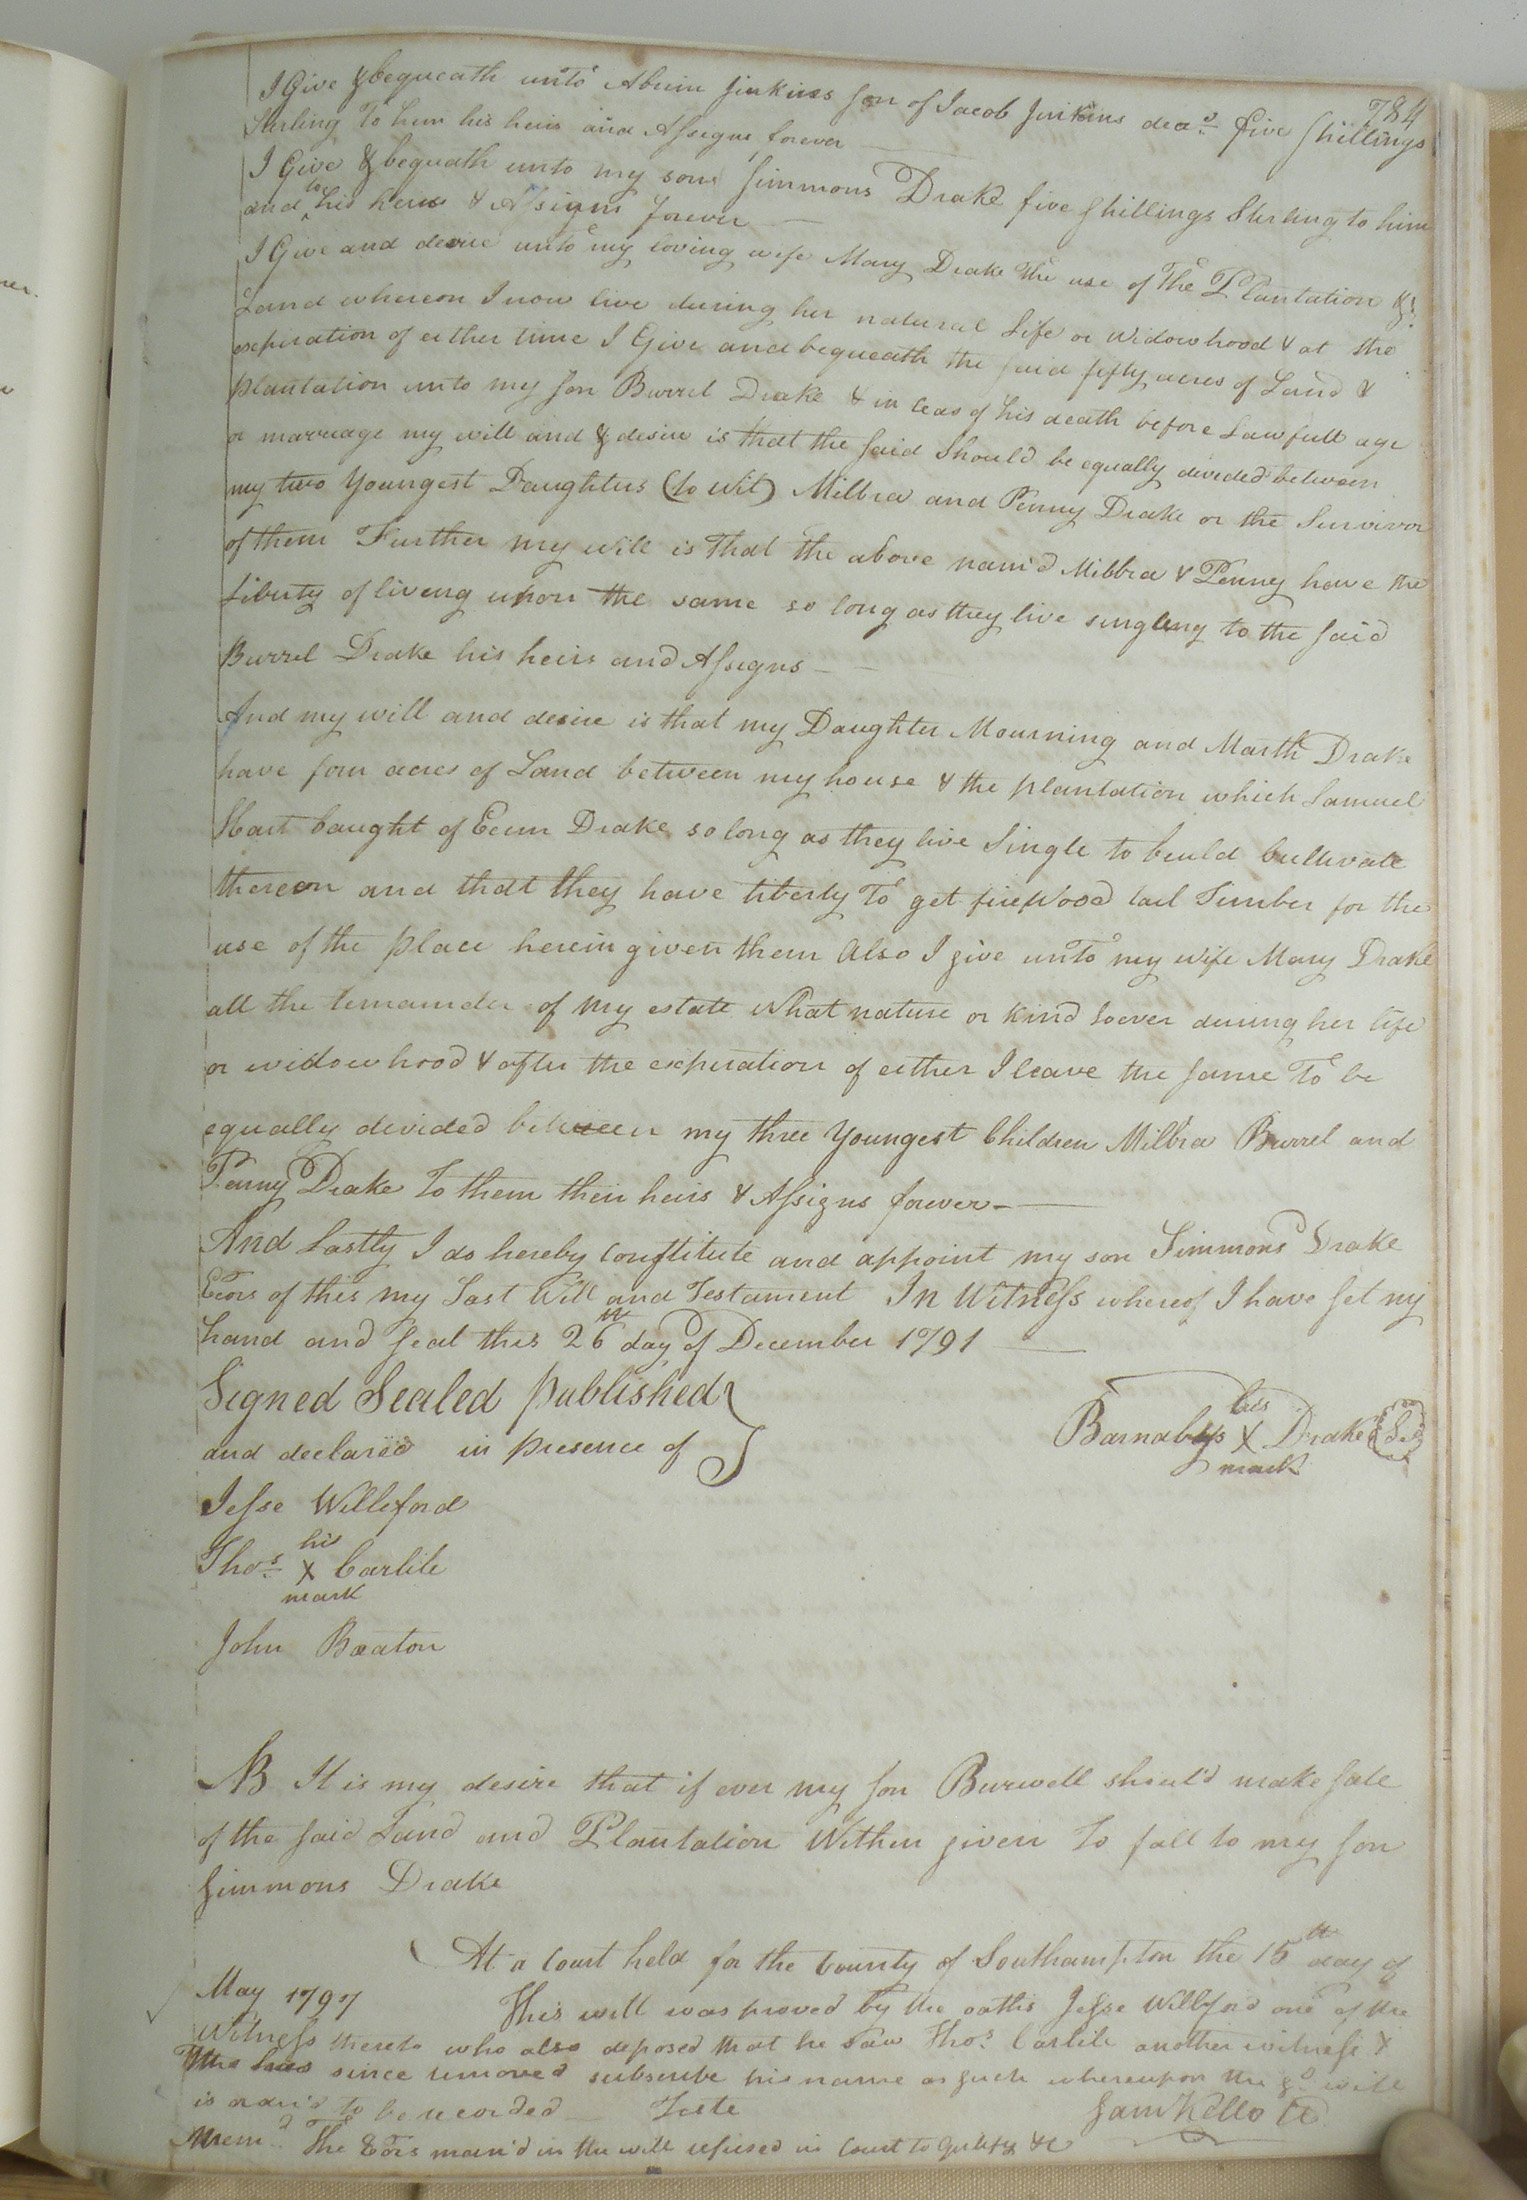 784
I Give & bequeath unto Abram Jinkins son of Jacob Jinkins dea.d five shillings
Sterling To him his heirs and Assigns forever
I Give & bequeath unto my sone Simmons Drake five shillings Sterling to him
and to his heirs & Assigns forever
I Give and desire unto my loving wife Mary Drake The use of The Plantation &
Land whereon I now live during her natural Life or widowhood & at the
expiration of either time I Give and bequeath the said fifty acres of Land &
plantation unto my son Burrel Drake & in ceas of his death before Lawfull age
or marriage my will and & desire is that the said should be equally divided between
my two Youngest Daughters (to wit) Milbra and Penny Drake or the Survivor
of them Further my will is that the above nam'd Milbra & Penny have the
Liberty of living upon the same so long as they live singleny to the said
Burrel Drake his heirs and Assigns
And my will and desire is that my Daughter Mourning and Marth Drake
have four acres of Land between my house & the plantation which Samuel
Hart baught of Drake so long as they live Single to beuld Cultivate
thereon and that they have liberty To get firewood Timber for the
use of the place herein given them Also I give unto my wife Mary Drake
all the remainder of my estate What nature or kind soever during her life
or widowhood & after the expiration of either I leave the same To be
equally divided between my three Youngest Children Milbra Burrel and
Penny Drake To them their heirs & Assigns forever
And Lastly I do hereby constitute and appoint my son Simmons Drake
Exors of this my Last Will and Testament In Witness whereof I have set my
hand and seal this 26th day of December 1791
Signed Sealed published
and declared in presence of
his
Barnabys X Drake
mark
Jesse Williford
his
Thos X Carlile
mark
John Beaton
NB It is my desire that if ever my son Burwell should make sale
of the said Land and Plantation Within given To fall to my son
Simmons Drake
At a Court held for the County of Southampton the 15th day of
May 1797
This will was proved by the oaths Jesse Williford one of the
Witness thereto who also deposed that he saw Thos Carlile another witness &
Who has since removed subscribe his name as such whereupon the sd will
is order'd to be recorded Teste
Sam Kello
Memd The Exors nam'd in the will refused in Court to qualify &c